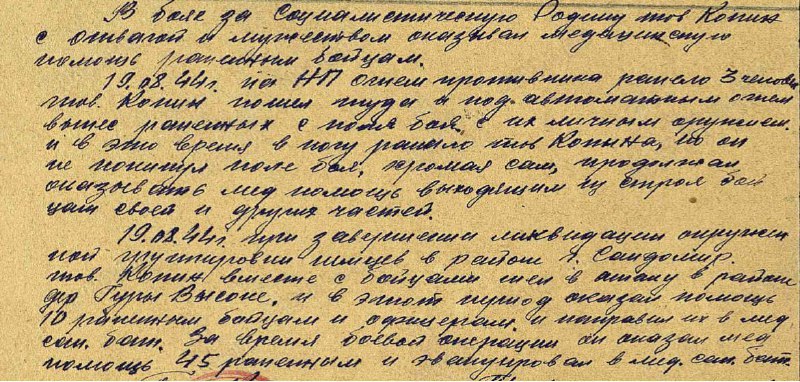 В бояе за Социалистическую Родину тов Копин
с отвагой и мужеством оказывал медацинскую
помощь раненым бойцам.
19.08.44г. на НП огнем противника ранело 3 челове
тов. Копин пошел туда и под автоматным огнем
вынес раненных с поля боя с их личным оружием.
и в это время в ногу ранило тов Копина, но он
не покинул поле боя, хромая сам, продолжал
оказывать мед помощь выходящим из строя бой
цам своей и других частей.
19.08.44г. при завершении ликвидации окружен
ной группировки немцев в районе г. Сандомир.
тов. Копин вместе с бойцами шел в атаку в районе
дер Гуры Высоке, и в этот период оказал помощь
10 раненным бойцам и офицерам и направил их в мед
сан. бат. За время боевой операции он оказал мед
помощь 45 раненным и эвакуировал в мед. сан. бат